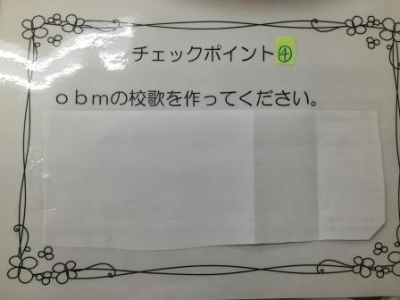 チェックポイント④
ｏｂｍの校歌を作ってください。